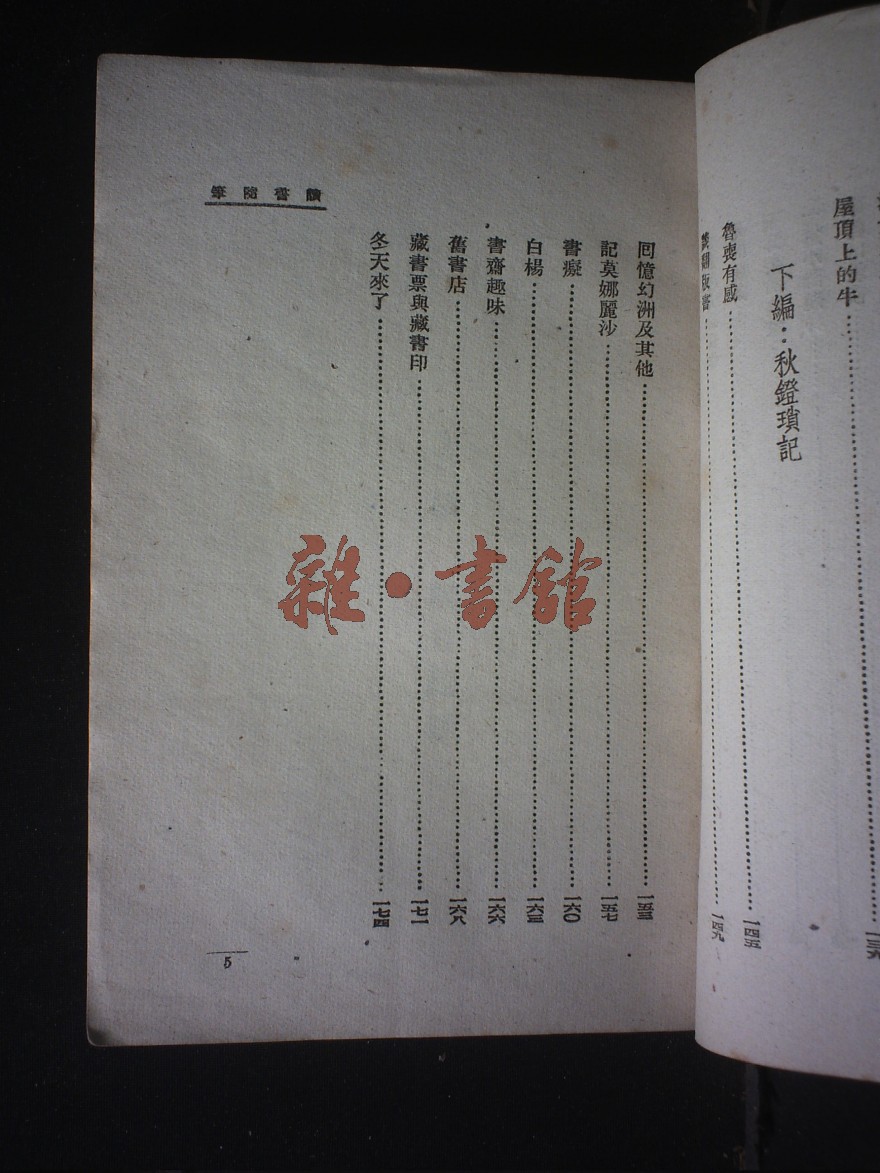 屋頂上的牛
下編：秋鐙瑣記
魯喪有感……一四五
翻版書……一四九
讀書隨筆
回憶幻洲及其他……一五三
記莫娜麗沙……一五七
書癡……一六〇
白楊……一六三
書齋趣味……一六六
舊書店……一六八
藏書票與藏書印……一七一
冬天來了……一七四
5
雜·書館